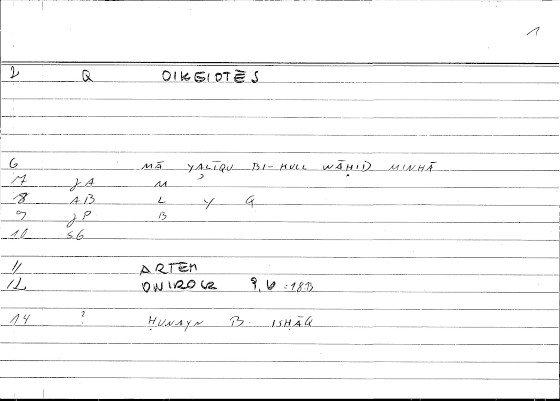 1
2 Q OIKEIOTĒS
6 MĀ YALĪQU BI-KULL WĀḤID MINHĀ
7 JA M
8 AB L Y Q
9 JP B
10 SG
11 ARTEM
12 ONIROCR 9, 6 =18.13
14 ? ḤUNAYN B ISḤĀQ